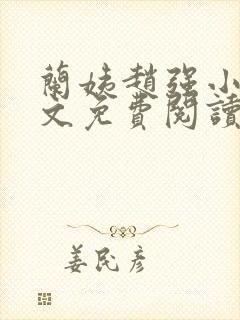 蘭姨趙強小
文免費閱讀
姜民彥